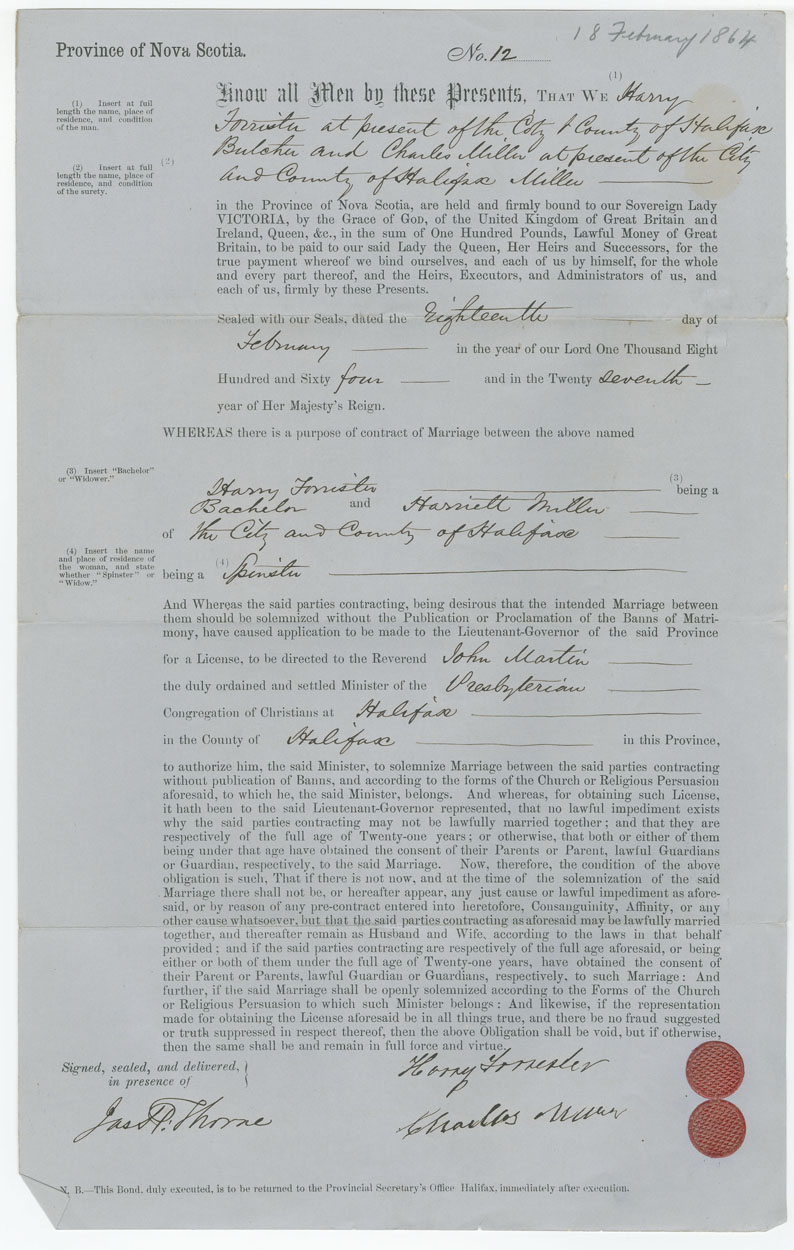 18 February 1864
Province of Nova Scotia.
No. 12
(1) Insert at full
length the name, place of
residence, and condition
of the man.
(1)
Know all Men by these Presents, THAT WE Harry
Forrister at present of the City & County of Halifax
(2) Insert at full
length the name, place of
residence, and condition
of the surety.
(2)
Butcher and Charles Miller at present of the City
and County of Halifax Miller
in the Province of Nova Scotia, are held and firmly bound to our Sovereign Lady
VICTORIA, by the Grace of God, of the United Kingdom of Great Britain and
Ireland, Queen, &c., in the sum of One Hundred Pounds, Lawful Money of Great
Britain, to be paid to our said Lady the Queen, Her Heirs and Successors, for the
true payment whereof we bind ourselves, and each of us by himself, for the whole
and every part thereof, and the Heirs, Executors, and Administrators of us, and
each of us, firmly by these Presents.
Sealed with our Seals, dated the Eighteenth day of
February in the year of our Lord One Thousand Eight
Hundred and Sixty four and in the Twenty seventh
year of Her Majesty's Reign.
WHEREAS there is a purpose of contract of Marriage between the above named
(3) Insert "Bachelor"
or "Widower."
Harry Forrister (3) being a
Bachelor and Harriett Miller
of the City and County of Halifax
(4) Insert the name
and place of residence of
the woman, and state
whether "Spinster" or
"Widow."
being a (4) Spinster
And Whereas the said parties contracting, being desirous that the intended Marriage between
them should be solemnized without the Publication or Proclamation of the Banns of Matri-
mony, have caused application to be made to the Lieutenant-Governor of the said Province
for a License, to be directed to the Reverend John Martin
the duly ordained and settled Minister of the Presbyterian
Congregation of Christians at Halifax
in the County of Halifax in this Province,
to authorize him, the said Minister, to solemnize Marriage between the said parties contracting
without publication of Banns, and according to the forms of the Church or Religious Persuasion
aforesaid, to which he, the said Minister, belongs. And whereas, for obtaining such License,
it hath been to the said Lieutenant-Governor represented, that no lawful impediment exists
why the said parties contracting may not be lawfully married together; and that they are
respectively of the full age of Twenty-one years; or otherwise, that both or either of them
being under that age have obtained the consent of their Parents or Parent, lawful Guardians
or Guardian, respectively, to the said Marriage. Now, therefore, the condition of the above
obligation is such, That if there is not now, and at the time of the solemnization of the said
Marriage there shall not be, or hereafter appear, any just cause or lawful impediment as afore-
said, or by reason of any pre-contract entered into heretofore, Consanguinity, Affinity, or any
other cause whatsoever, but that the said parties contracting as aforesaid may be lawfully married
together, and thereafter remain as Husband and Wife, according to the laws in that behalf
provided; and if the said parties contracting are respectively of the full age aforesaid, or being
either or both of them under the full age of Twenty-one years, have obtained the consent of
their Parent or Parents, lawful Guardian or Guardians, respectively, to such Marriage: And
further, if the said Marriage shall be openly solemnized according to the Forms of the Church
or Religious Persuasion to which such Minister belongs: And likewise, if the representation
made for obtaining the License aforesaid be in all things true, and there be no fraud suggested
or truth suppressed in respect thereof, then the above Obligation shall be void, but if otherwise,
then the same shall be and remain in full force and virtue.
Signed, sealed, and delivered,
in presence of
Harry Forrester
Jas. H. Thorne
Charles Miller
N. B.—This Bond, duly executed, is to be returned to the Provincial Secretary's Office Halifax, immediately after execution.